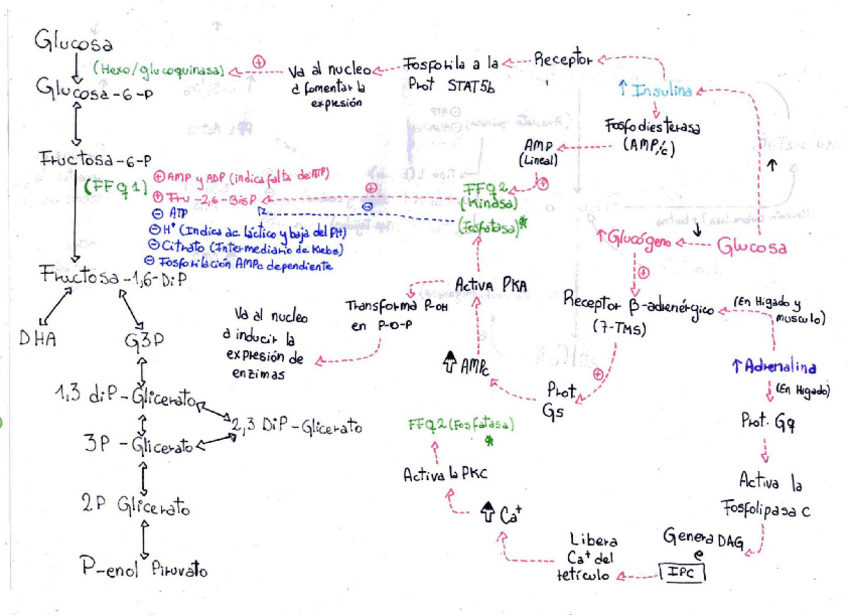 Glucosa
(Hexo/glucoquinasa)
Va al nucleo
a fomentar la
expresión
Fosforila a la
Prot STAT5b
Receptor
↑ Insulina
Glucosa-6-P
Fosfodiesterasa
(AMP/c)
AMP
(Lineal)
Fructosa-6-P
(FFQ1)
⊕ AMP y ADP (indica falta de ATP)
⊕ Fru-2,6-BisP
⊖ ATP
⊖ H⁺ (Indica ac láctico y baja del PH)
⊖ Citrato (Intermediario de Klebs)
⊖ Fosforilación AMPc dependiente
⊕
⊕
⊖
⊕
FFQ2
(Kinasa)
(Fosfatasa)*
↑ Glucógeno
↓
Glucosa
↑
⊕
Fructosa-1,6-DiP
Activa PKA
Transforma P-OH
en P-O-P
Va al nucleo
a inducir la
expresión de
enzimas
Receptor β-adrenérgico
(7-TMS)
(En Higado y
musculo)
DHA
G3P
⇧ AMPc
⊕
Prot.
Gs
↑ Adrenalina
(En Higado)
1,3 diP-Glicerato
2,3 DiP-Glicerato
3P-Glicerato
FFQ2 (Fosfatasa)
*
Prot. Gq
Activa la PKC
Activa la
Fosfolipasa C
2P Glicerato
⇧ Ca⁺
Libera
Ca⁺ del
retículo
Genera DAG
e
IPC
P-enol Piruvato